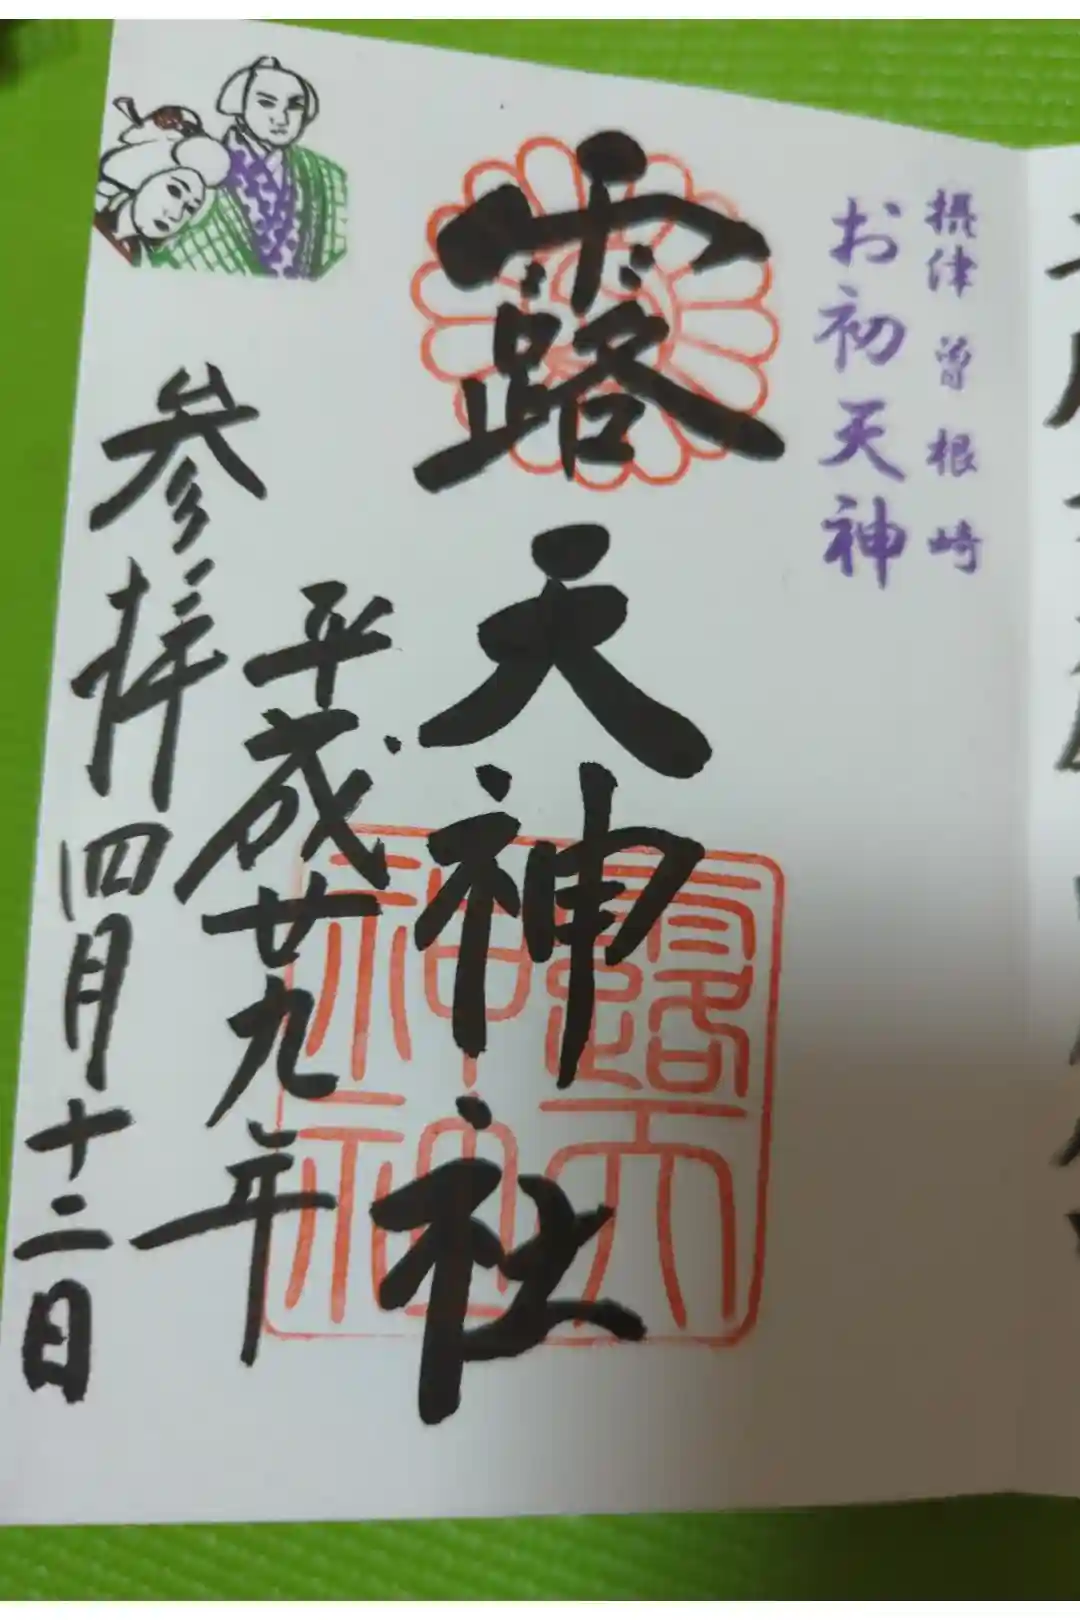 摂津 曽根崎
お初天神
露天神社
平成廿九年
参拝 四月十二日
露天
神社